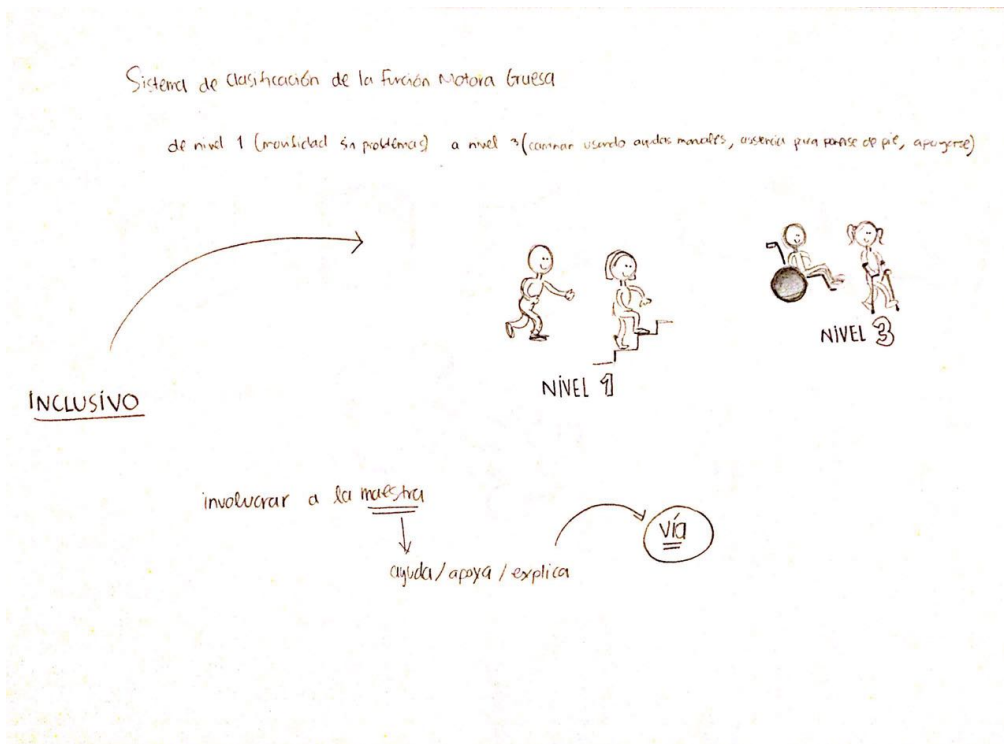 Sistema de clasificación de la Función Motora Gruesa
de nivel 1 (movilidad sin problemas) a nivel 3 (caminar usando ayudas manuales, asistencia para ponerse de pie, apoyarse)
INCLUSIVO
NIVEL 1
NIVEL 3
involucrar a la maestra
ayuda / apoya / explica
vía